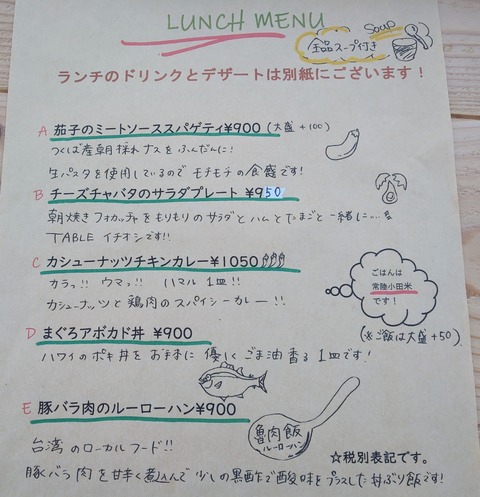 LUNCH MENU
Soup
全品スープ付き
ランチのドリンクとデザートは別紙にございます！
A 茄子のミートソーススパゲティ¥900 (大盛+100)
つくば産朝採れナスをふんだんに!
生パスタを使用しているので モチモチの食感です!
B チーズチャバタのサラダプレート ¥950
朝焼きフォカッチャをもりもりのサラダとハムとたまごと一緒に…
TABLE イチオシです!!
C カシューナッツチキンカレー¥1050
カラっ!! ウマっ!! ハマル1皿!!
カシューナッツと鶏肉のスパイシーカレー!!
ごはんは
常陸小田米
です！
(※ご飯は大盛+50)
D まぐろアボカド丼 ¥900
ハワイのポキ丼をお手本に 優しくごま油香る1皿です!
E 豚バラ肉のルーローハン¥900
魯肉飯
ルーローハン
台湾のローカルフード!!
☆税別表記です。
豚バラ肉を甘辛く煮込んで少しの黒酢で酸味をプラスした丼ぶり飯です!